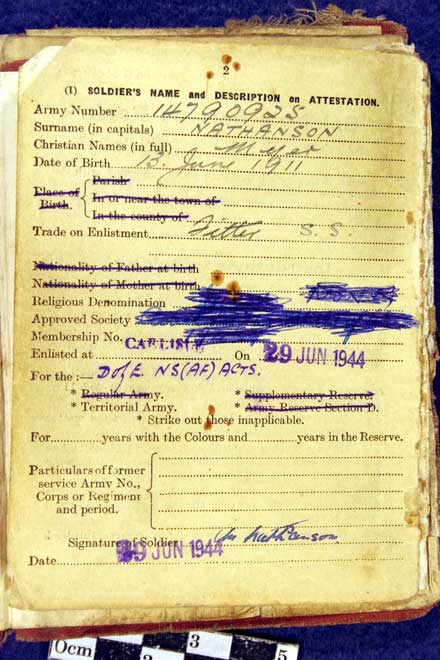 2
(1) SOLDIER'S NAME and DESCRIPTION on ATTESTATION.
Army Number 14790925
Surname (in capitals) NATHANSON
Christian Names (in full) Meyer
Date of Birth 13 June 1911
Place of Birth. { Parish
In or near the town of
In the county of
Trade on Enlistment Fitter S.S.
Nationality of Father at birth
Nationality of Mother at birth
Religious Denomination
Approved Society
Membership No.
Enlisted at CARLISLE On 29 JUN 1944
For the :— D of E NS (AF) ACTS.
* Regular Army. * Supplementary Reserve.
* Territorial Army. * Army Reserve Section D.
* Strike out those inapplicable.
For years with the Colours and years in the Reserve.
Particulars of former service Army No., Corps or Regiment and period.
Signature of Soldier M Nathanson
Date 29 JUN 1944
0cm 3 5